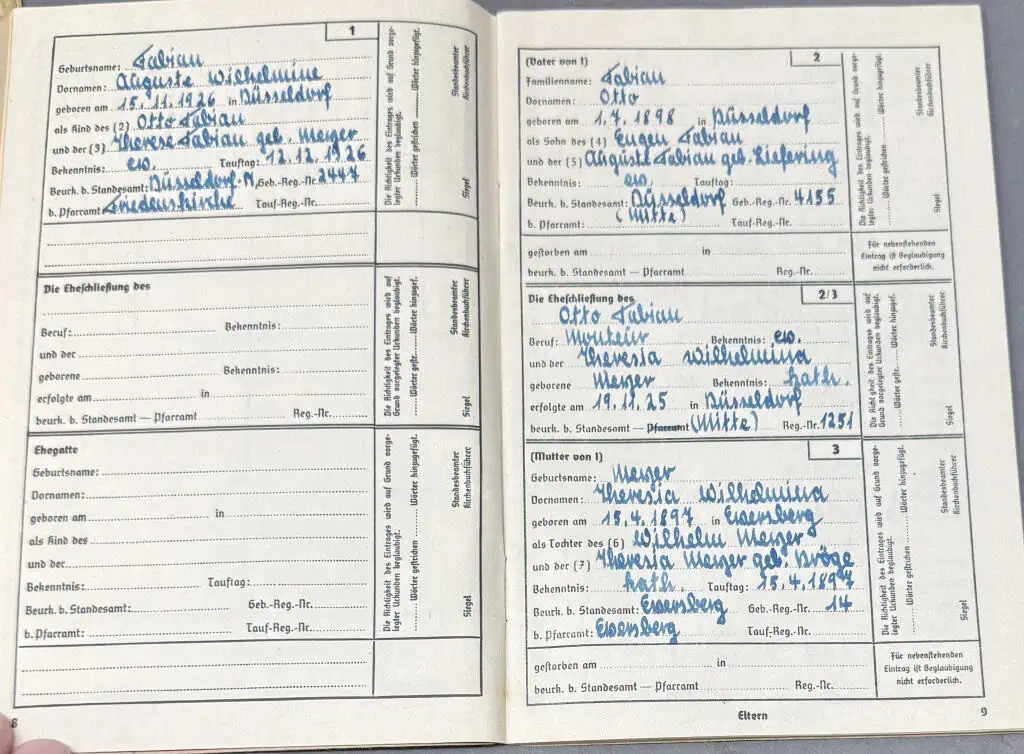 1
Geburtsname: Fabian
Vornamen: Auguste Wilhelmine
geboren am 15.11.1926 in Düsseldorf
als Kind des (2) Otto Fabian
und der (3) Therese Fabian geb. Meizer
Bekenntnis: ev. Tauftag: 12.12.1926
Beurk. b. Standesamt: Düsseldorf-N, Geb.-Reg.-Nr. 2447
b. Pfarramt Friedenskirche Tauf-Reg.-Nr.
Die Richtigkeit des Eintrages wird auf Grund vorge-
legter Urkunden beglaubigt.
Wörter gestrichen Wörter hinzugefügt.
Siegel Standesbeamter
Kirchenbuchführer
Die Eheschließung des
Beruf: Bekenntnis:
und der
geborene Bekenntnis:
erfolgte am in
beurk. b. Standesamt — Pfarramt Reg.-Nr.
Die Richtigkeit des Eintrages wird auf
Grund vorgelegter Urkunden beglaubigt.
Wörter gestr. Wörter hinzugef.
Siegel Standesbeamter
Kirchenbuchführer
Ehegatte
Geburtsname:
Vornamen:
geboren am in
als Kind des
und der
Bekenntnis: Tauftag:
Beurk. b. Standesamt: Geb.-Reg.-Nr.
b. Pfarramt: Tauf-Reg.-Nr.
Die Richtigkeit des Eintrages wird auf Grund vorge-
legter Urkunden beglaubigt.
Wörter gestrichen Wörter hinzugefügt.
Siegel Standesbeamter
Kirchenbuchführer
8
2
(Vater von 1)
Familienname: Fabian
Vornamen: Otto
geboren am 1.7.1898 in Düsseldorf
als Sohn des (4) Eugen Fabian
und der (5) Auguste Fabian geb. Kiefering
Bekenntnis: ev. Tauftag:
Beurk. b. Standesamt: Düsseldorf Geb.-Reg.-Nr. 4155
(Mitte)
b. Pfarramt: Tauf-Reg.-Nr.
Die Richtigkeit des Eintrages wird auf Grund vorge-
legter Urkunden beglaubigt.
Wörter gestrichen Wörter hinzugefügt.
Siegel Standesbeamter
Kirchenbuchführer
gestorben am in
beurk. b. Standesamt — Pfarramt Reg.-Nr.
Für nebenstehenden
Eintrag ist Beglaubigung
nicht erforderlich.
2/3
Die Eheschließung des
Otto Fabian
Beruf: Monteur Bekenntnis: ev.
und der Theresia Wilhelmina
geborene Meizer Bekenntnis: kath.
erfolgte am 19.11.25 in Düsseldorf
beurk. b. Standesamt — Pfarramt (Mitte) Reg.-Nr. 1251
Die Richtigkeit des Eintrages wird auf
Grund vorgelegter Urkunden beglaubigt.
Wörter gestr. Wörter hinzugef.
Siegel Standesbeamter
Kirchenbuchführer
3
(Mutter von 1)
Geburtsname: Meizer
Vornamen: Theresia Wilhelmina
geboren am 15.4.1897 in Eversberg
als Tochter des (6) Wilhelm Meizer
und der (7) Theresia Meizer geb. Dröge
Bekenntnis: kath. Tauftag: 15.4.1897
Beurk. b. Standesamt: Eversberg Geb.-Reg.-Nr. 14
b. Pfarramt: Eversberg Tauf-Reg.-Nr.
Die Richtigkeit des Eintrages wird auf Grund vorge-
legter Urkunden beglaubigt.
Wörter gestrichen Wörter hinzugefügt.
Siegel Standesbeamter
Kirchenbuchführer
gestorben am in
beurk. b. Standesamt — Pfarramt Reg.-Nr.
Für nebenstehenden
Eintrag ist Beglaubigung
nicht erforderlich.
Eltern
9